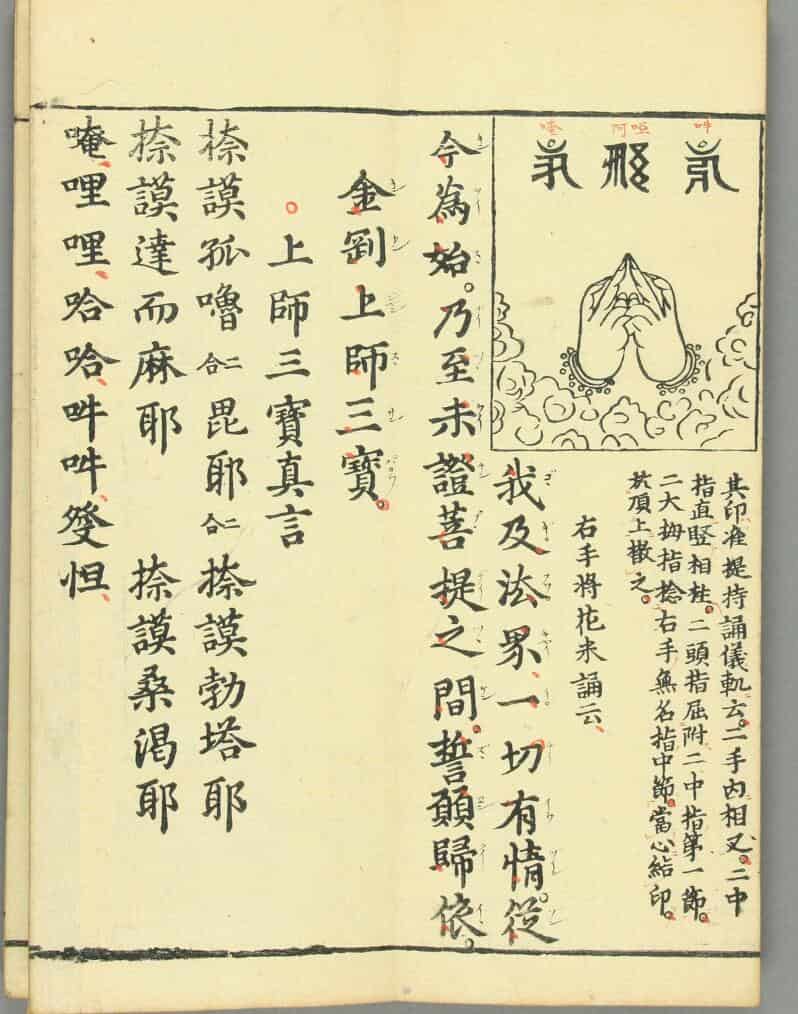 唵 阿啞 吽
其印准提持誦儀軌云。二手內相叉。二中
指直竪相拄。二頭指屈附二中指第一節。
二大拇指捻右手無名指中節。當心結印。
於頂上撒之。
右手將花米誦云、
我及法界、一切有情。從
今為始。乃至未證菩提之間。誓願歸依。
金剛上師三寶。
上師三寶真言
捺謨孤嚕二合毘耶二合捺謨勃塔耶
捺謨達而麻耶 捺謨桑渴耶
唵、哩哩、哈哈、吽吽、癹怛、